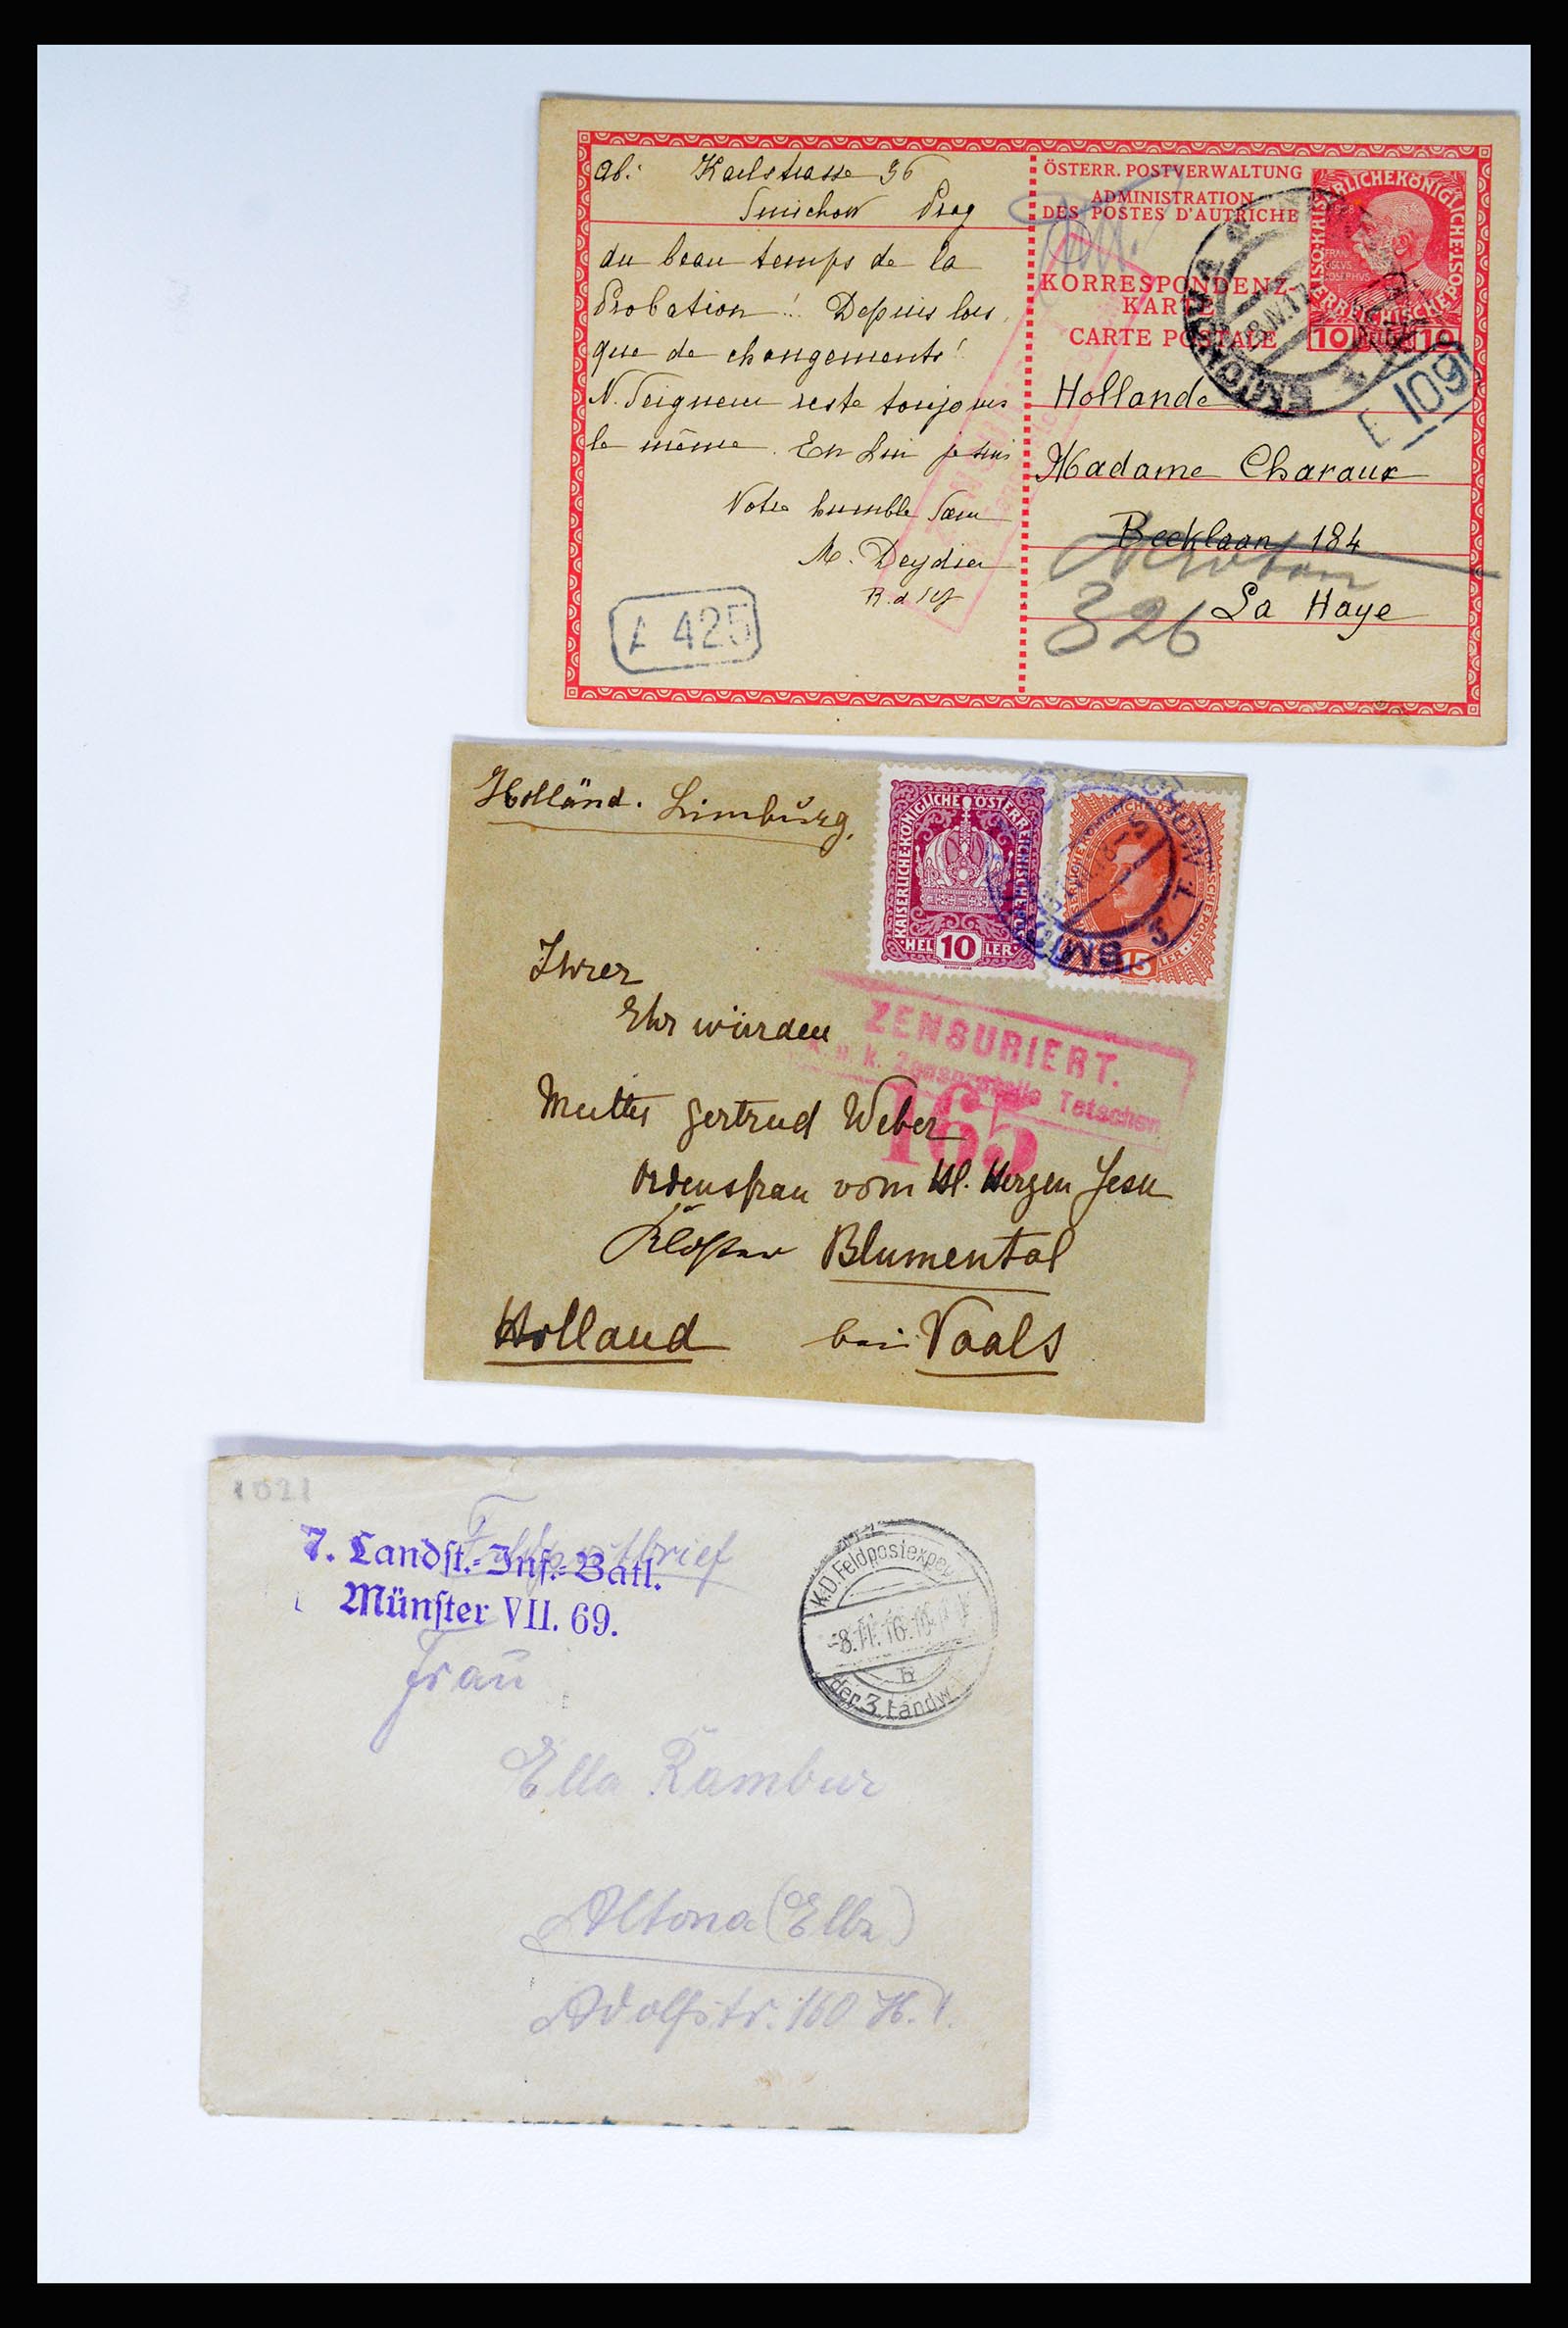 ab: Karlstrasse 36
Smichow Prag
du beau temps de la
Probation!! Depuis lors
que de changements!
N. Seigneur reste toujours
le même. En Lui je suis
Votre humble Sœur
M. Deydier
A 425
ÖSTERR. POSTVERWALTUNG
ADMINISTRATION
DES POSTES D'AUTRICHE
KORRESPONDENZ-
KARTE
CARTE POSTALE
10 10
109
Hollande
Madame Charaux
Beeklaan 184
326
La Haye
Holländ. Limburg.
KAISERLICHE KÖNIGLICHE ÖSTERREICHISCHE POST
HEL 10 LER
15
ZENSURIERT.
k. u. k. Zensurstelle Tetschen
165
Ihrer
Ehrwürden
Mutter Gertrud Weber
Ordensfrau vom Hl. Herzen Jesu
Kloster Blumental
Holland bei Vaals
1021
Feldpostbrief
7. Landst.-Inf.-Batl.
Münster VII. 69.
K.D. Feldpostexped.
-8.11.16.10-11 V
b
der 3. Landw.
Frau
Ella Rambur
Altona (Elbe)
Adolfstr. 160 H. I.